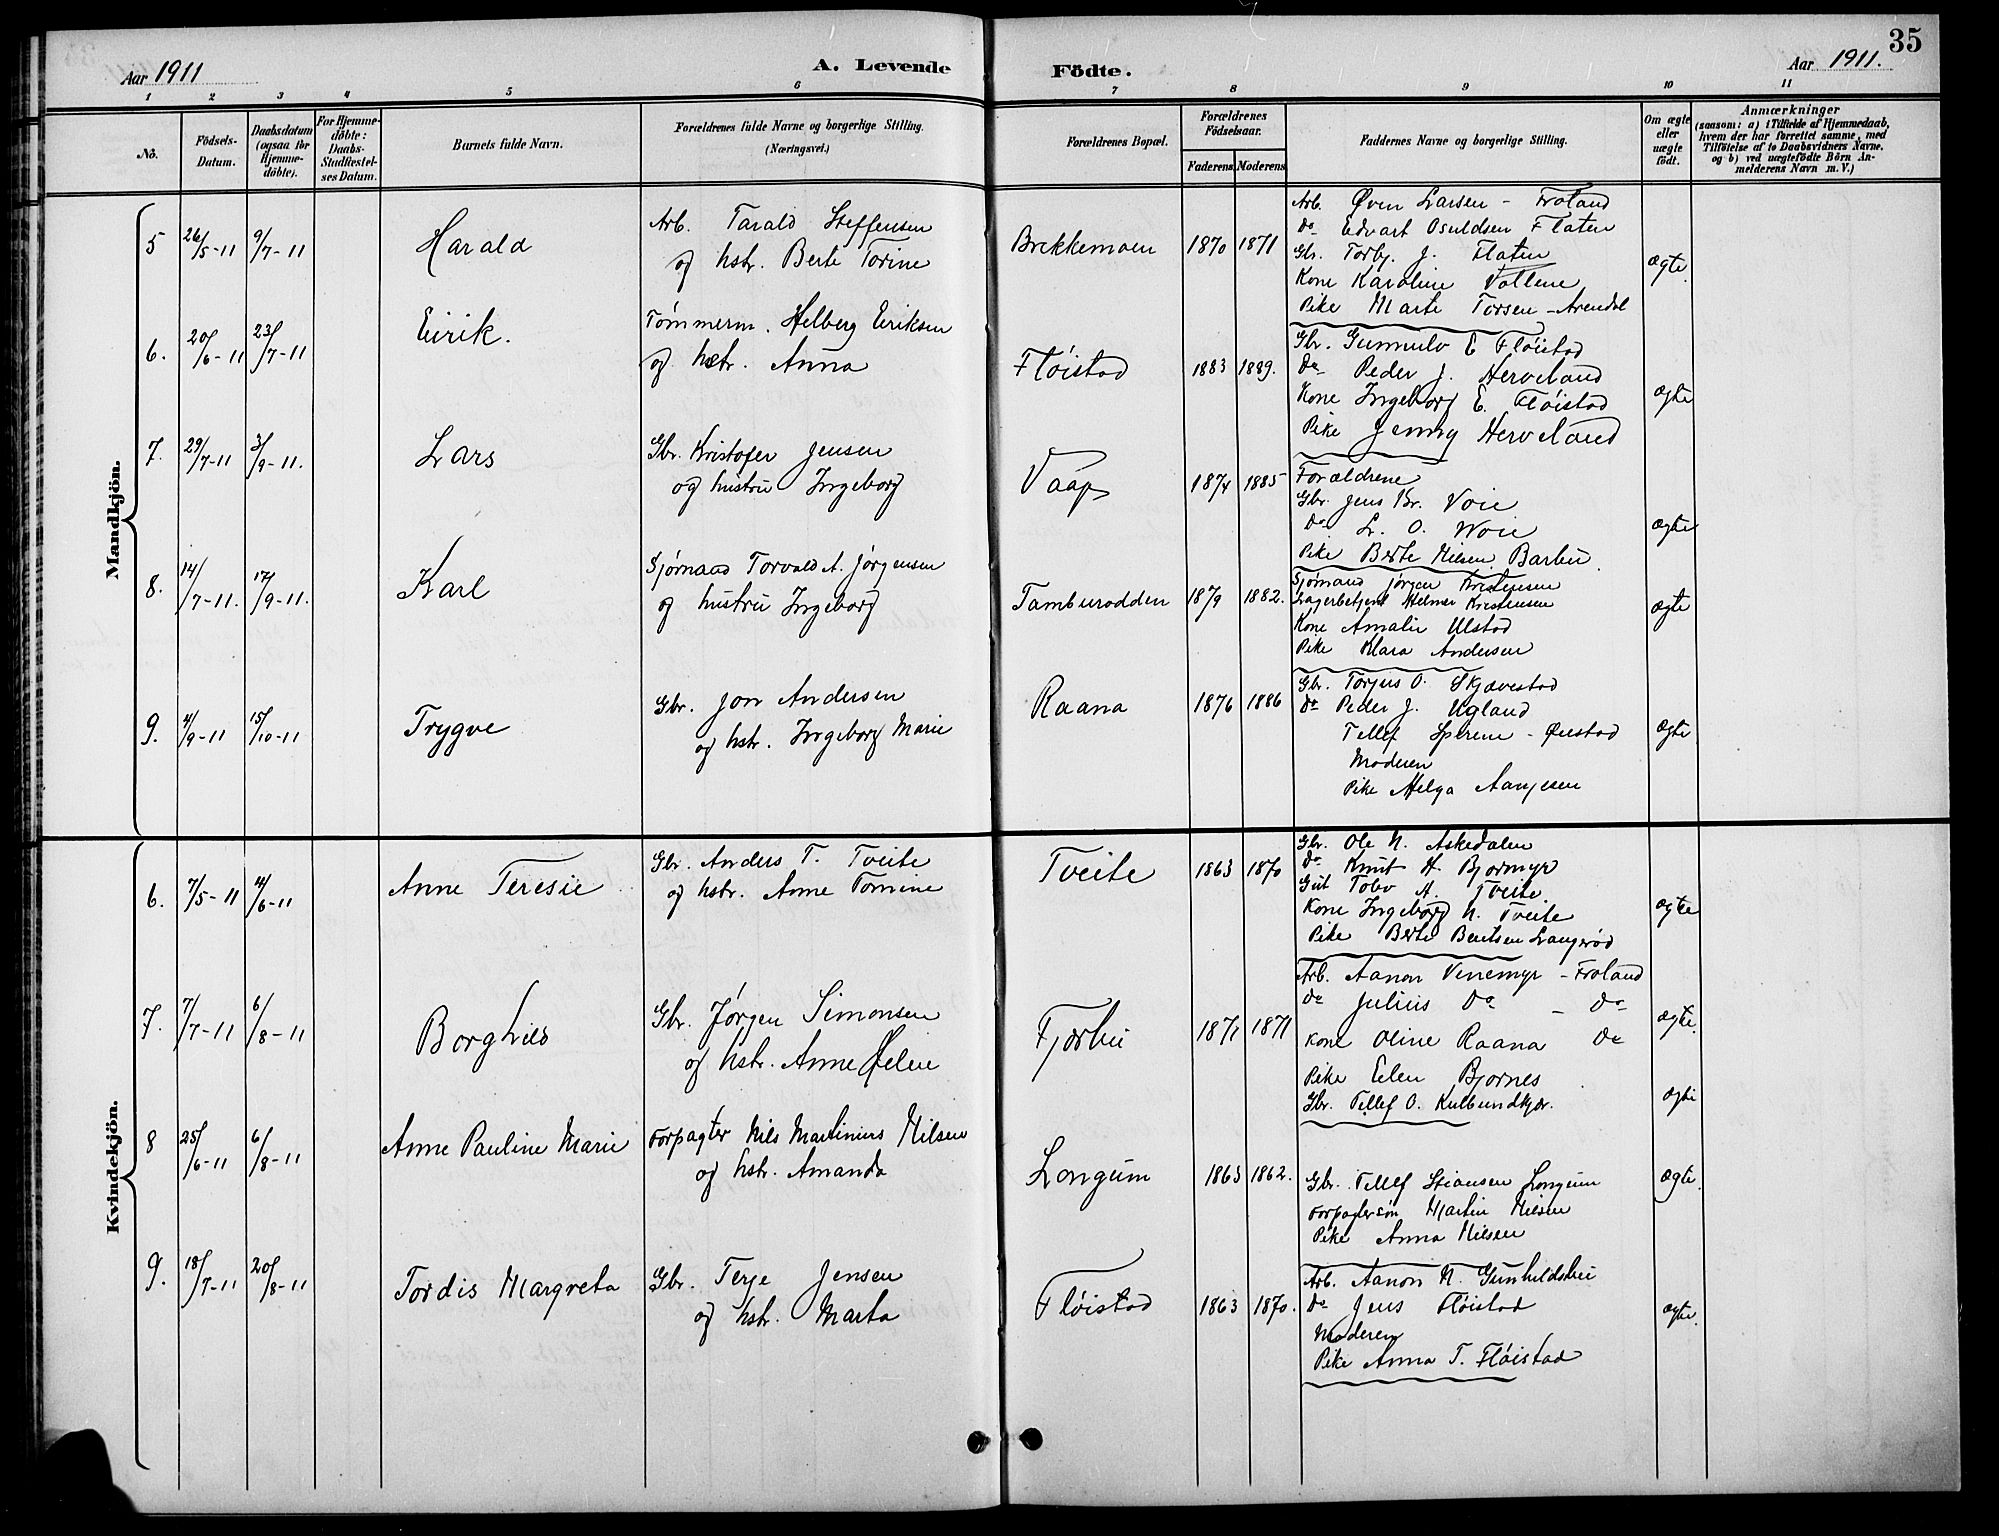 35
Aar 1911
A. Levende
Födte.
Aar 1911.
1 2 3 4 5 6 7 8 9 10 11
No.
Födsels-
Datum.
Daabsdatum
(ogsaa for
Hjemme-
döbte).
For Hjemme-
döbte:
Daabs-
Stadfæstel-
ses Datum.
Barnets fulde Navn.
Forældrenes fulde Navne og borgerlige Stilling.
(Næringsvei.)
Forældrenes Bopæl.
Forældrenes
Födselsaar.
Faderens Moderens
Faddernes Navne og borgerlige Stilling.
Om ægte
eller
uægte
födt.
Anmærkninger
(saasom: a) i Tilfælde af Hjemmedaab,
hvem der har forrettet samme, med
Tilföielse af to Daabsvidners Navne.
og b) ved uægtefödte Börn An-
melderens Navn m. V.)
Mandkjön.
5 26/5-11 9/7-11
Harald
Arb. Tarald Steffensen
og hstr. Berte Torine
Brekkemoen 1870 1871
Arb. Øven Larsen - Froland
Do Edvart Osuldsen Flaten
Gbr. Torbj. J. Flaten
Kone Karoline Vollene
Pike Marte Torsen - Arendal
ægte
6. 20/6-11 23/7-11
Eirik.
Tømmerm. Helberg Eiriksen
og hstr. Anna
Fløistad 1883 1889.
Gbr. Gunnulv E Fløistad
Do Peder J. Herveland
Kone Ingeborg E. Fløistad
Pike Jenny Herveland
ægte
7. 29/7-11 3/9-11.
Lars
Gbr. Kristofer Jensen
og hustru Ingeborg
1874 1885
Forældrene
Gbr. Jens Br. Voie
Do L. O. Woie
Pike Berte Nilsen Barbu.
ægte
8. 14/7-11. 17/9-11.
Karl
Sjømand Torvald A. Jørgensen
og hustru Ingeborg
Tamburodden 1879 1882.
Sjømand Jørgen Kristensen
Lagerbetjent Helmer Kristensen
Kone Amalie Ulstad
Pike Klara Andersen
ægte
9. 4/9-11 15/10-11
Trygve
Gbr. Jon Andersen
og hstr. Ingeborg Marie
Raana 1876 1886
Gbr. Torjus O. Skjævestad
Do Peder J. Ugland
Tellef Sperene - Øiestad
Moderen
Pike Helga Aanjesen
ægte
Kvindekjön.
6. 7/5-11 4/6-11
Anne Teresie
Gbr. Anders T. Tveite
og hstr. Anne Tomine
Tveite 1863 1870
Gbr. Ole N. Askedalen
Do Knut A. Bjormyr
Gut Tobv A. Tveite.
Kone Ingeborg N. Tveite
Pike Berte Bentsen Langerød
ægte
7. 7/7-11 6/8-11
Borghild
Gbr. Jørgen Simonsen
og hstr. Anne Helene
Fjærbu 1871 1871
Arb. Aanon Venemyr - Froland
Do Julius Do - Do
Kone Oline Raana Do
Pike Elen Bjornes
Gbr. Tellef O. Kulbundkjær.
ægte.
ægte
8 25/6-11 6/8-11
Anne Pauline Marie
Forpagter Nils Martinius Nilsen
og hstr. Amanda
Longum 1863 1862.
Gbr. Tellef Stiansen Longum
Forpagtersøn Martin Nilsen
Pike Anna Nilsen
ægte.
9. 18/7-11 20/8-11
Tordis Margreta
Gbr. Terje Jensen
og hstr. Marta
Fløistad 1863 1870.
Arb. Aanon N. Gunhildsbu
Do Jens Fløistad
Moderen
Pike Anna T. Fløistad
ægte.